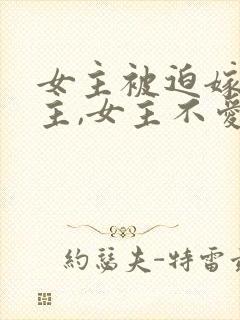 女主被迫嫁
主,女主不愛
約瑟夫-特雷